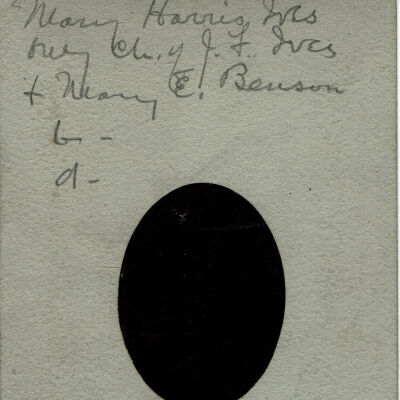 "Mary Harris Ives
only ch. of J. F. Ives
+ Mary E. Benson
b -
d -